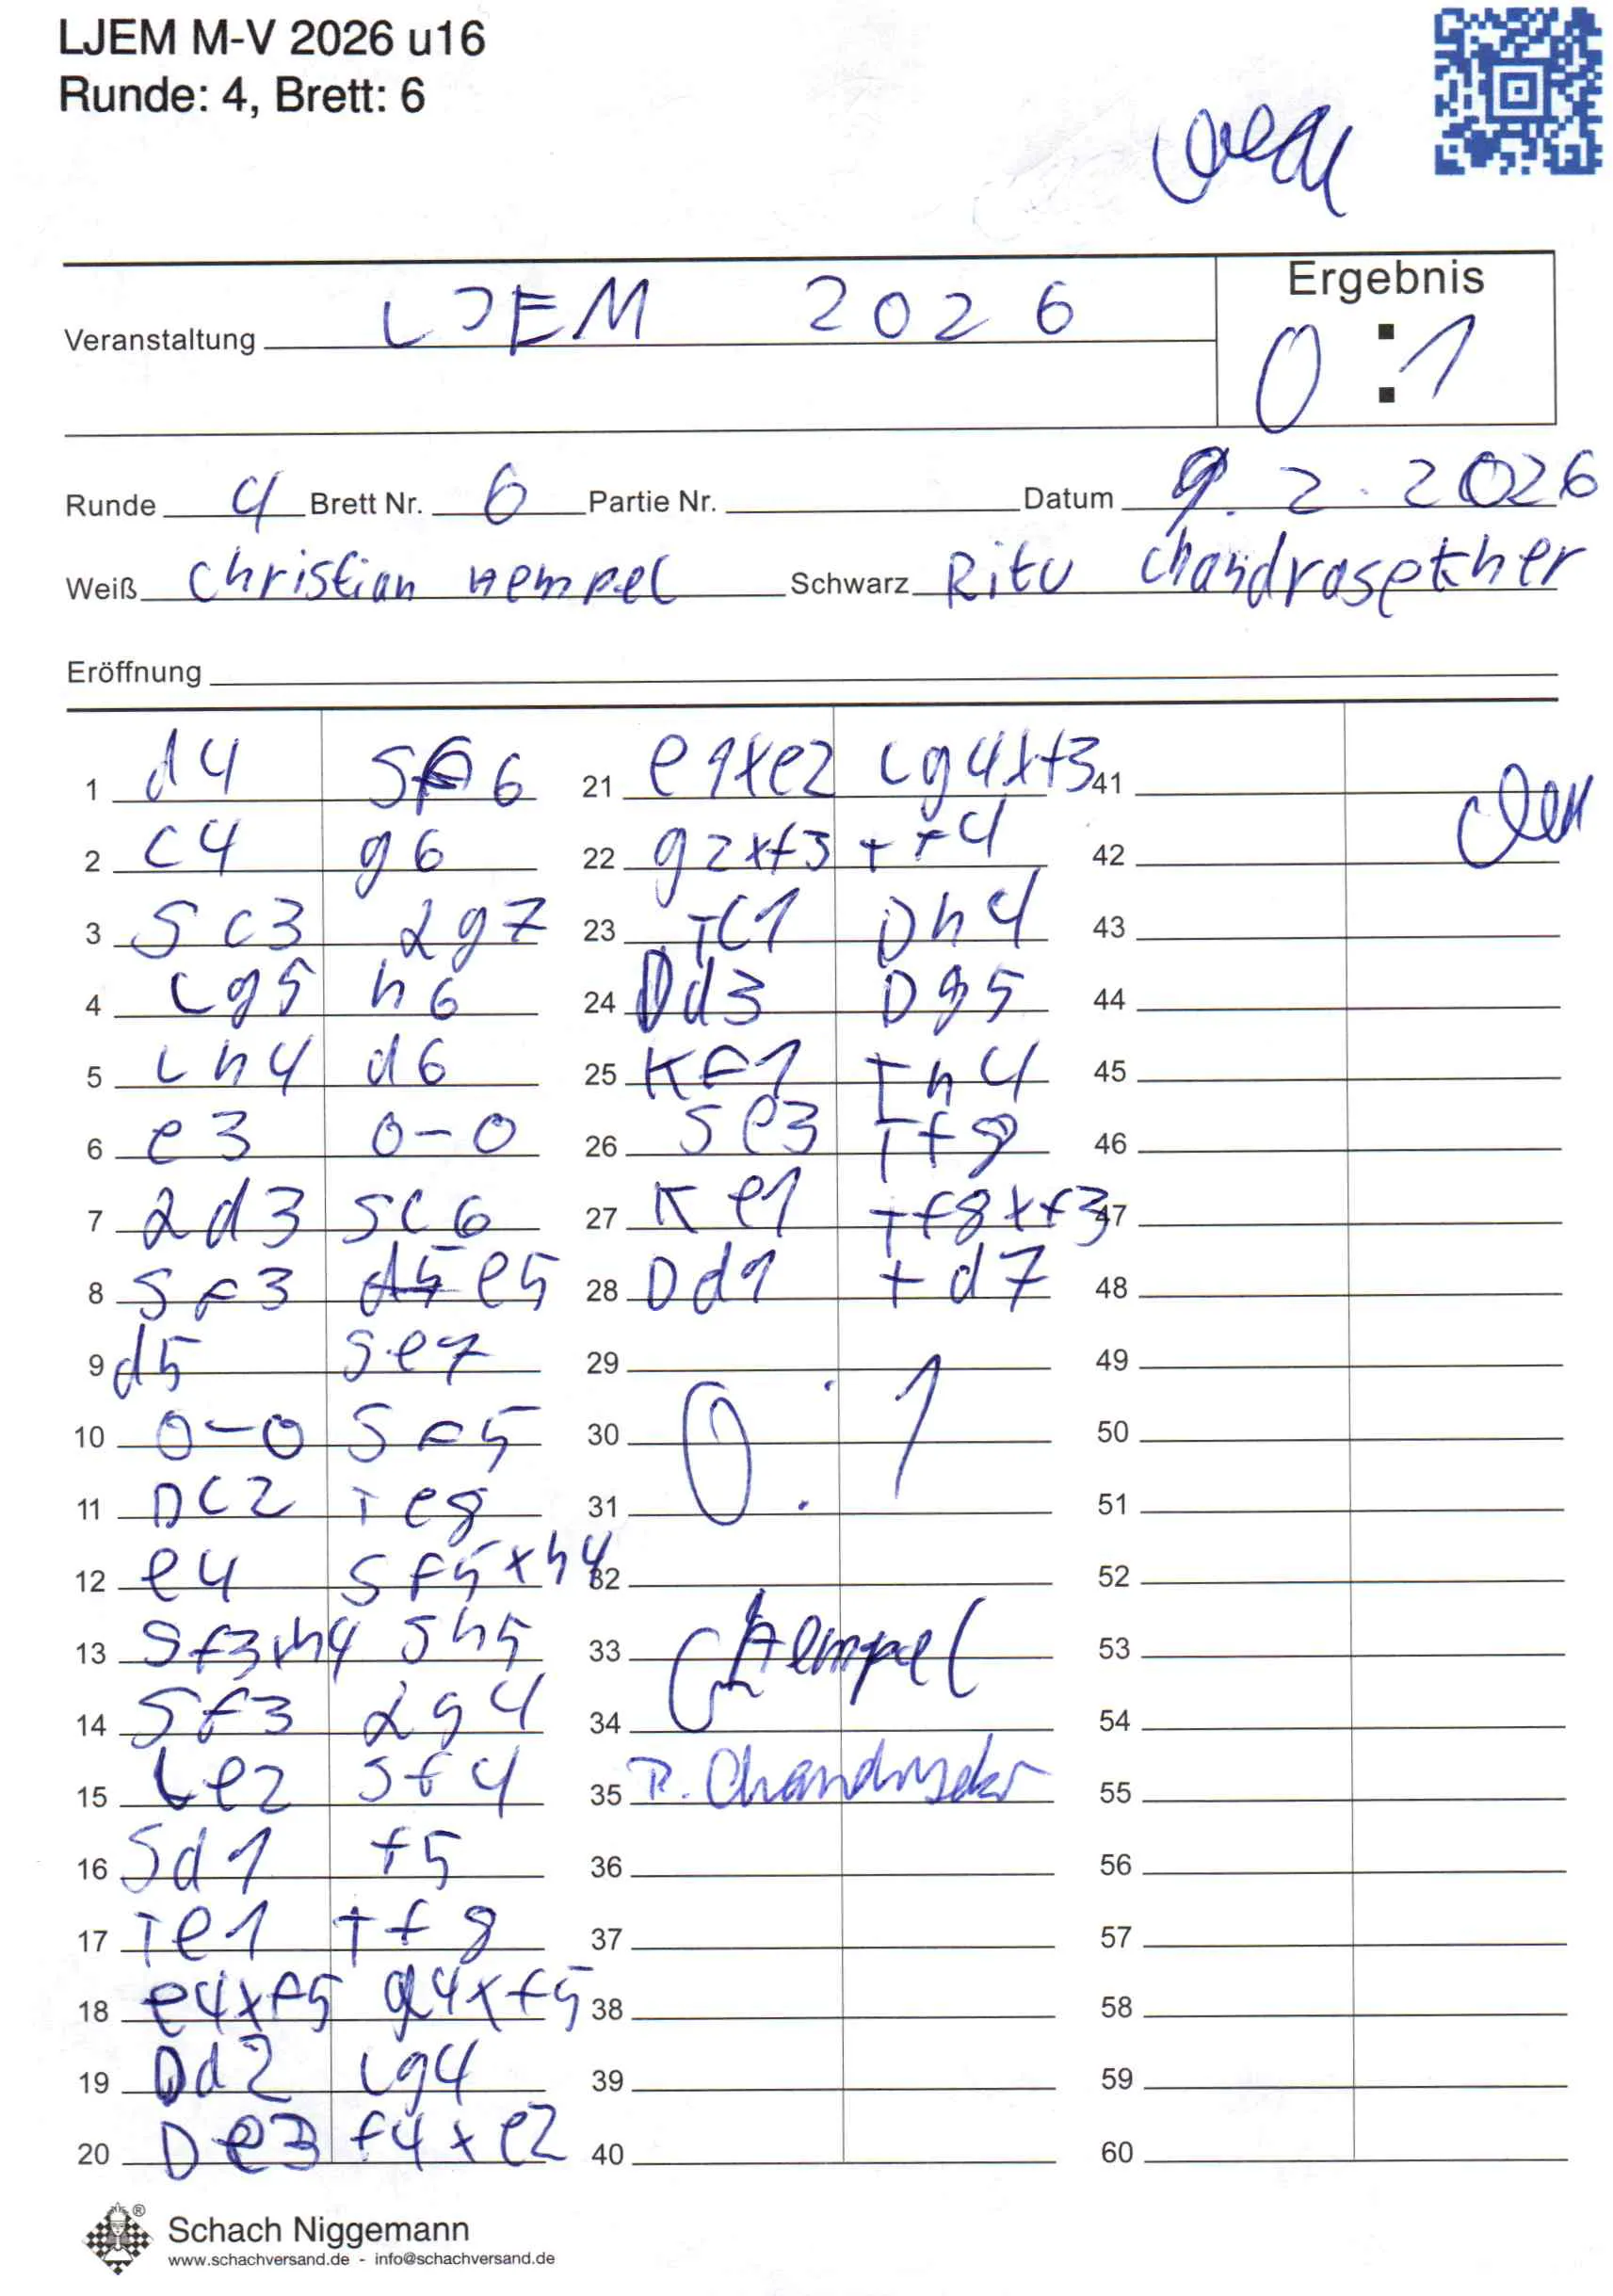 LJEM M-V 2026 u16
Runde: 4, Brett: 6
Ergebnis
Veranstaltung LJEM 2026
0 : 1
Runde 4 Brett Nr. 6 Partie Nr. Datum 9. 2. 2026
Weiß Christian Hempel Schwarz Ritu Chandrasekher
Eröffnung
1 d4 Sf6
2 c4 g6
3 Sc3 Lg7
4 Lg5 h6
5 Lh4 d6
6 e3 0-0
7 Ld3 Sc6
8 Sf3 d5 e5
9 d5 Se7
10 0-0 Sf5
11 Dc2 Te8
12 e4 Sf5xh4
13 Sf3xh4 Sh5
14 Sf3 Lg4
15 Le2 Sf4
16 Sd1 f5
17 Te1 Tf8
18 e4xf5 g4xf5
19 Dd2 Lg4
20 De3 f4xe2
21 e1xe2 Lg4xf3
22 g2xf3 Tf4
23 Tc1 Dh4
24 Dd3 Dg5
25 Kf1 Th4
26 Se3 Tf8
27 Ke1 Tf8xf3
28 Dd1 Ld7
29
30 0 : 1
31
32
33 C Hempel
34
35 R. Chandrasekher
36
37
38
39
40
41
42
43
44
45
46
47
48
49
50
51
52
53
54
55
56
57
58
59
60
Schach Niggemann
www.schachversand.de - info@schachversand.de